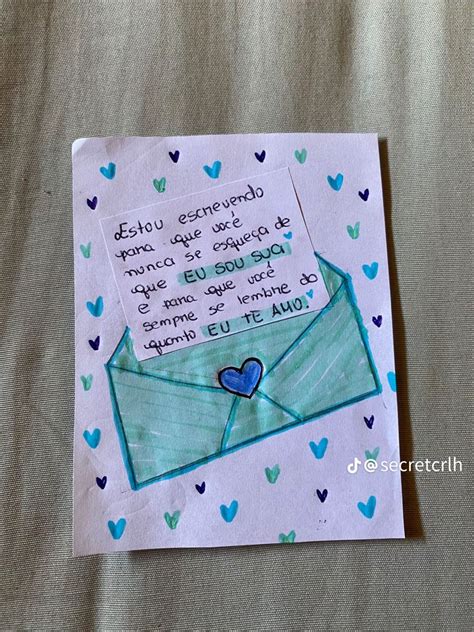 Estou escrevendo
para que você
nunca se esqueça de
que EU SOU SUA
e para que você
sempre se lembre do
quanto EU TE AMO!
@secretcrlh